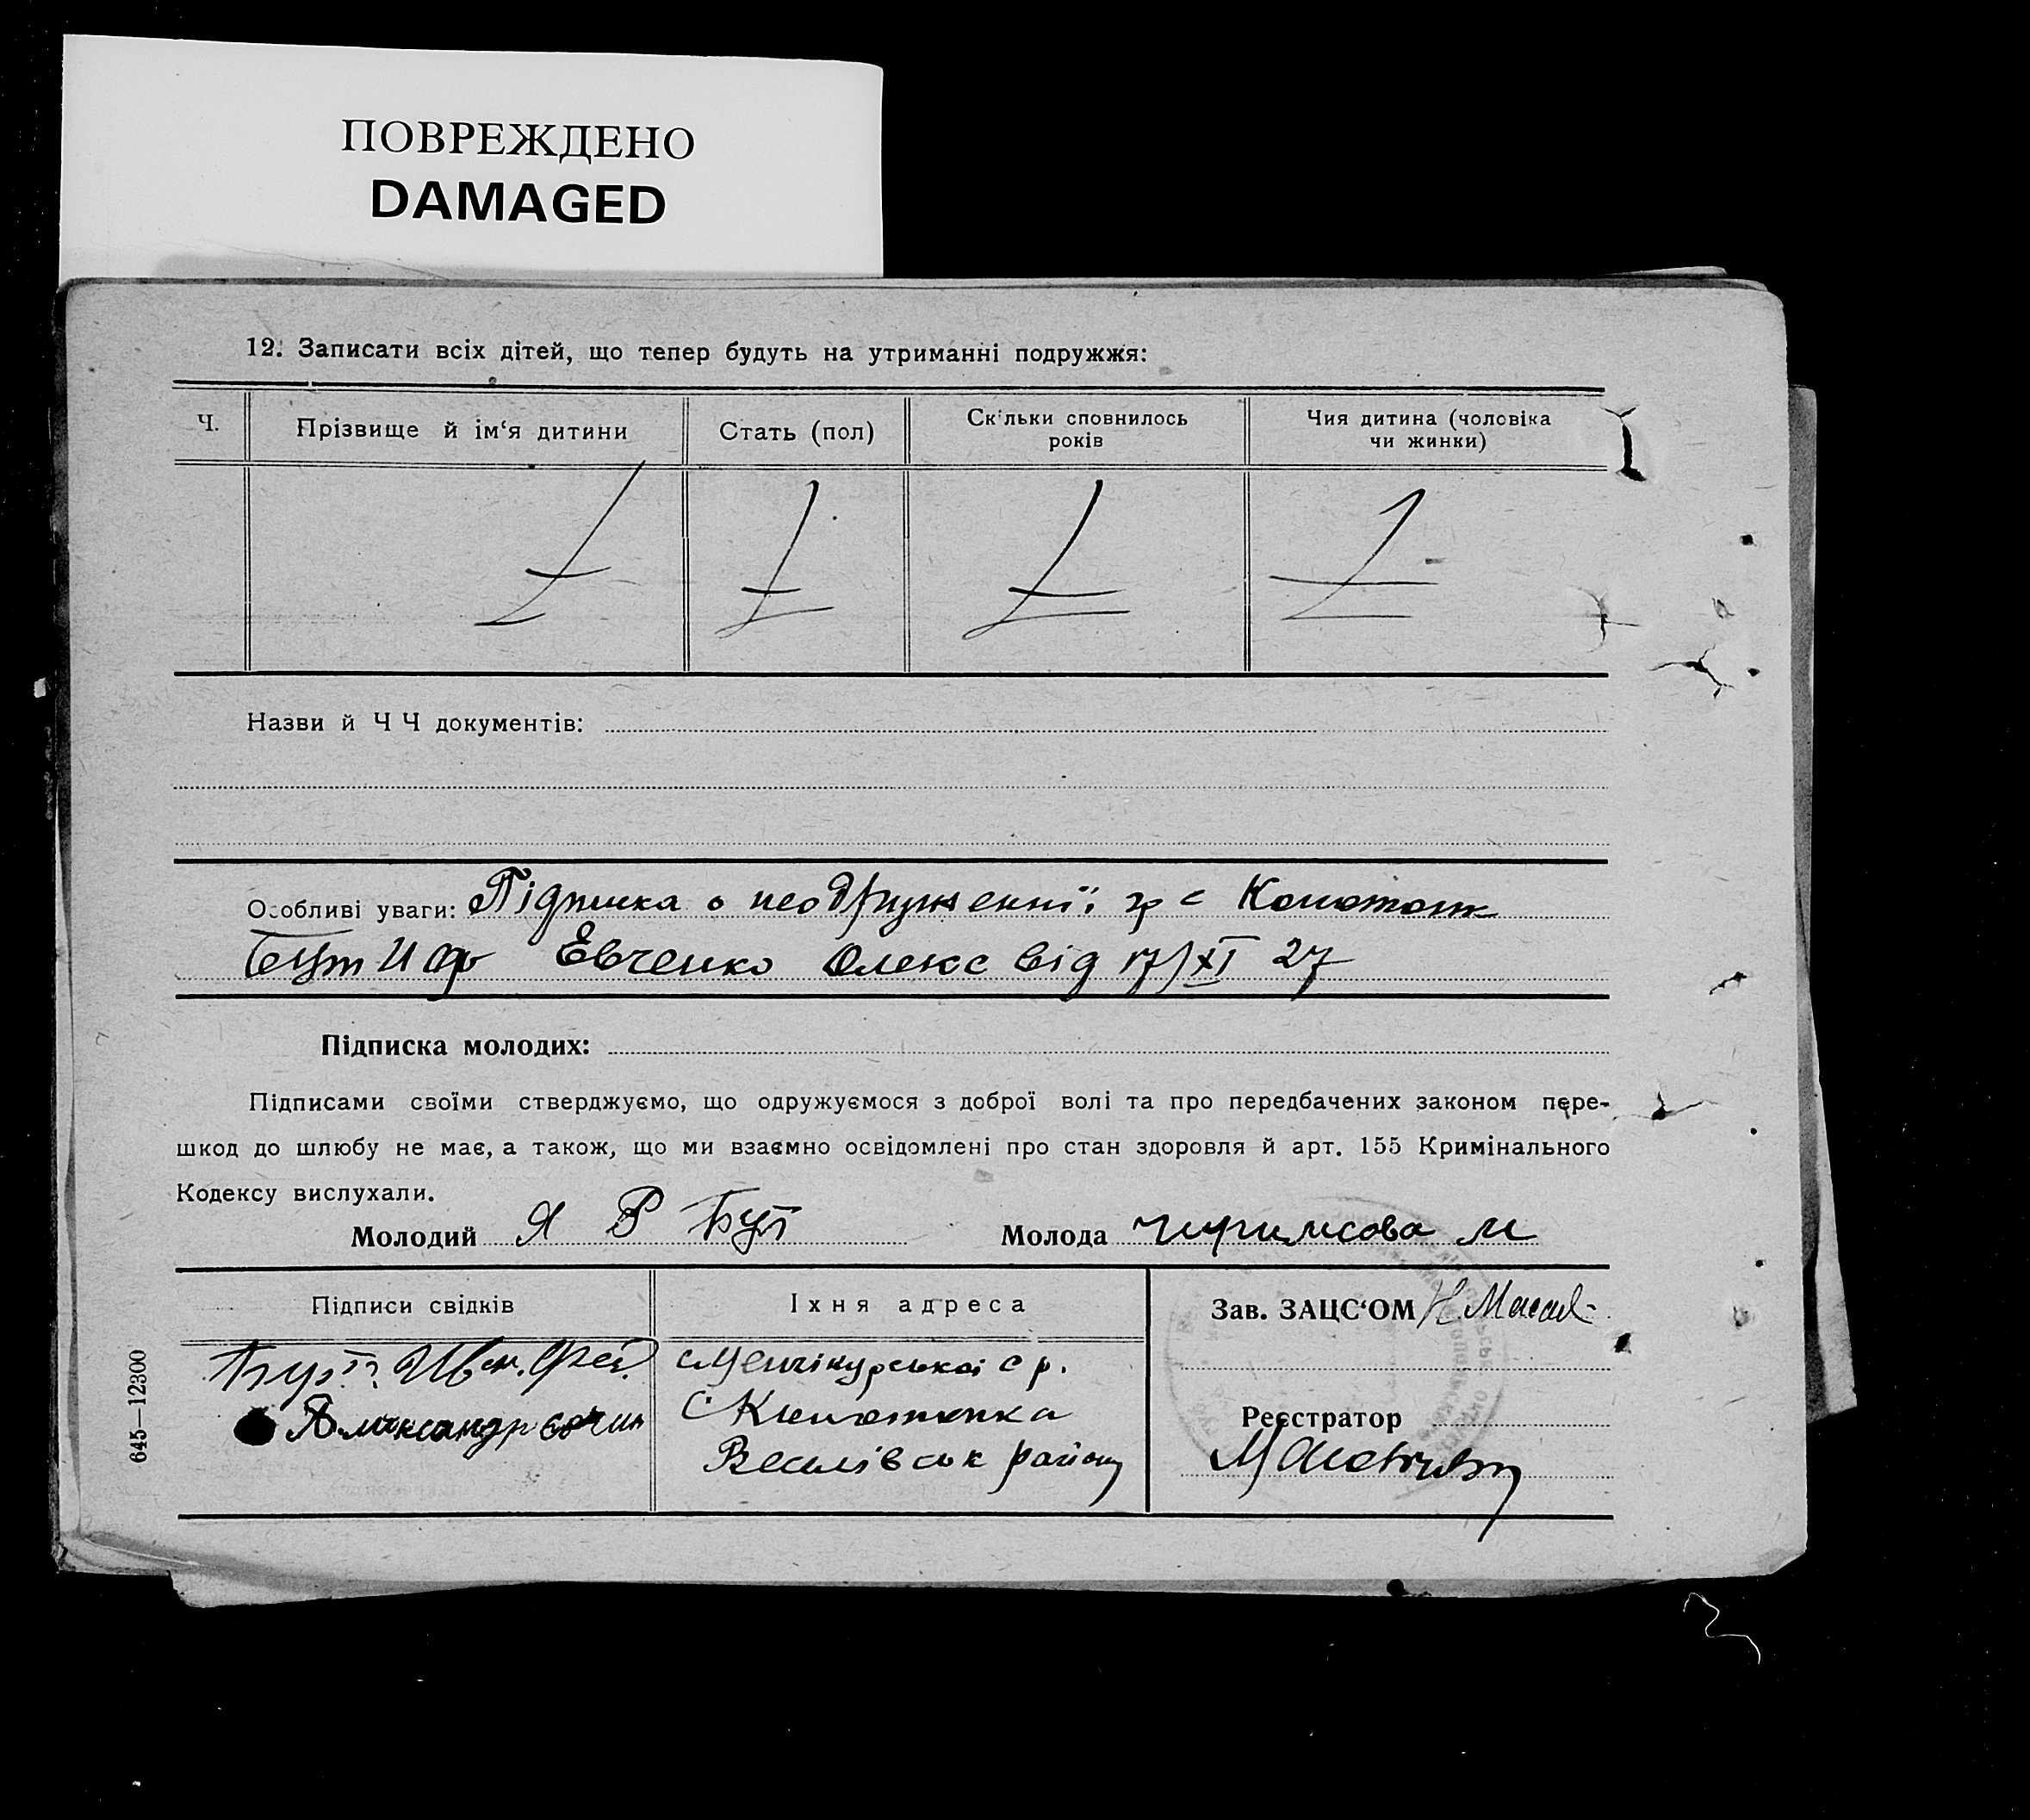 ПОВРЕЖДЕНО
DAMAGED
12. Записати всіх дітей, що тепер будуть на утриманні подружжя:
Ч. Прізвище й ім‘я дитини Стать (пол) Скільки сповнилось років Чия дитина (чоловіка чи жинки)
Назви й Ч Ч документів:
Особливі уваги: Підписка о неодруженнії гр с
Бут И Ф Евченко Олекс від 17/XI 27
Підписка молодих:
Підписами своїми стверджуємо, що одружуємося з доброї волі та про передбачених законом пере-
шкод до шлюбу не має, а також, що ми взаємно освідомлені про стан здоровля й арт. 155 Кримінального
Кодексу вислухали.
Молодий Я Р Бут Молода М
Підписи свідків Їхня адреса Зав. ЗАЦС‘ОМ Н
Бут Ив с р.
С
Реєстратор
Веселівськ району
645—12300